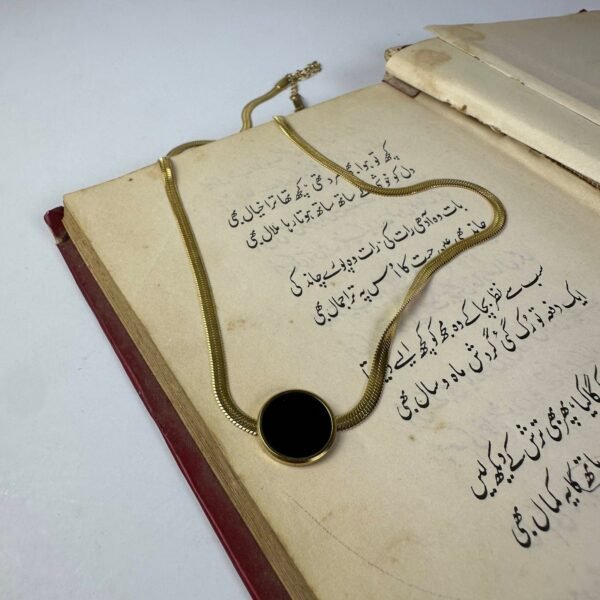 کچھ تو ہوا بھی سرد تھی کچھ تھا ترا خیال بھی
دل کو خوشی کے ساتھ ساتھ ہوتا رہا ملال بھی
بات وہ آدھی رات کی رات وہ پورے چاند کی
چاند بھی عین چیت کا اُس پہ ترا جمال بھی
سب سے نظر بچا کے وہ مجھ کو کچھ ایسے دیکھتا
ایک دفعہ تو رُک گئی گردشِ ماہ و سال بھی
گا کیا، پھر بھی ترش کے دیکھ لیں
ہاتھ کا یہ کمال بھی